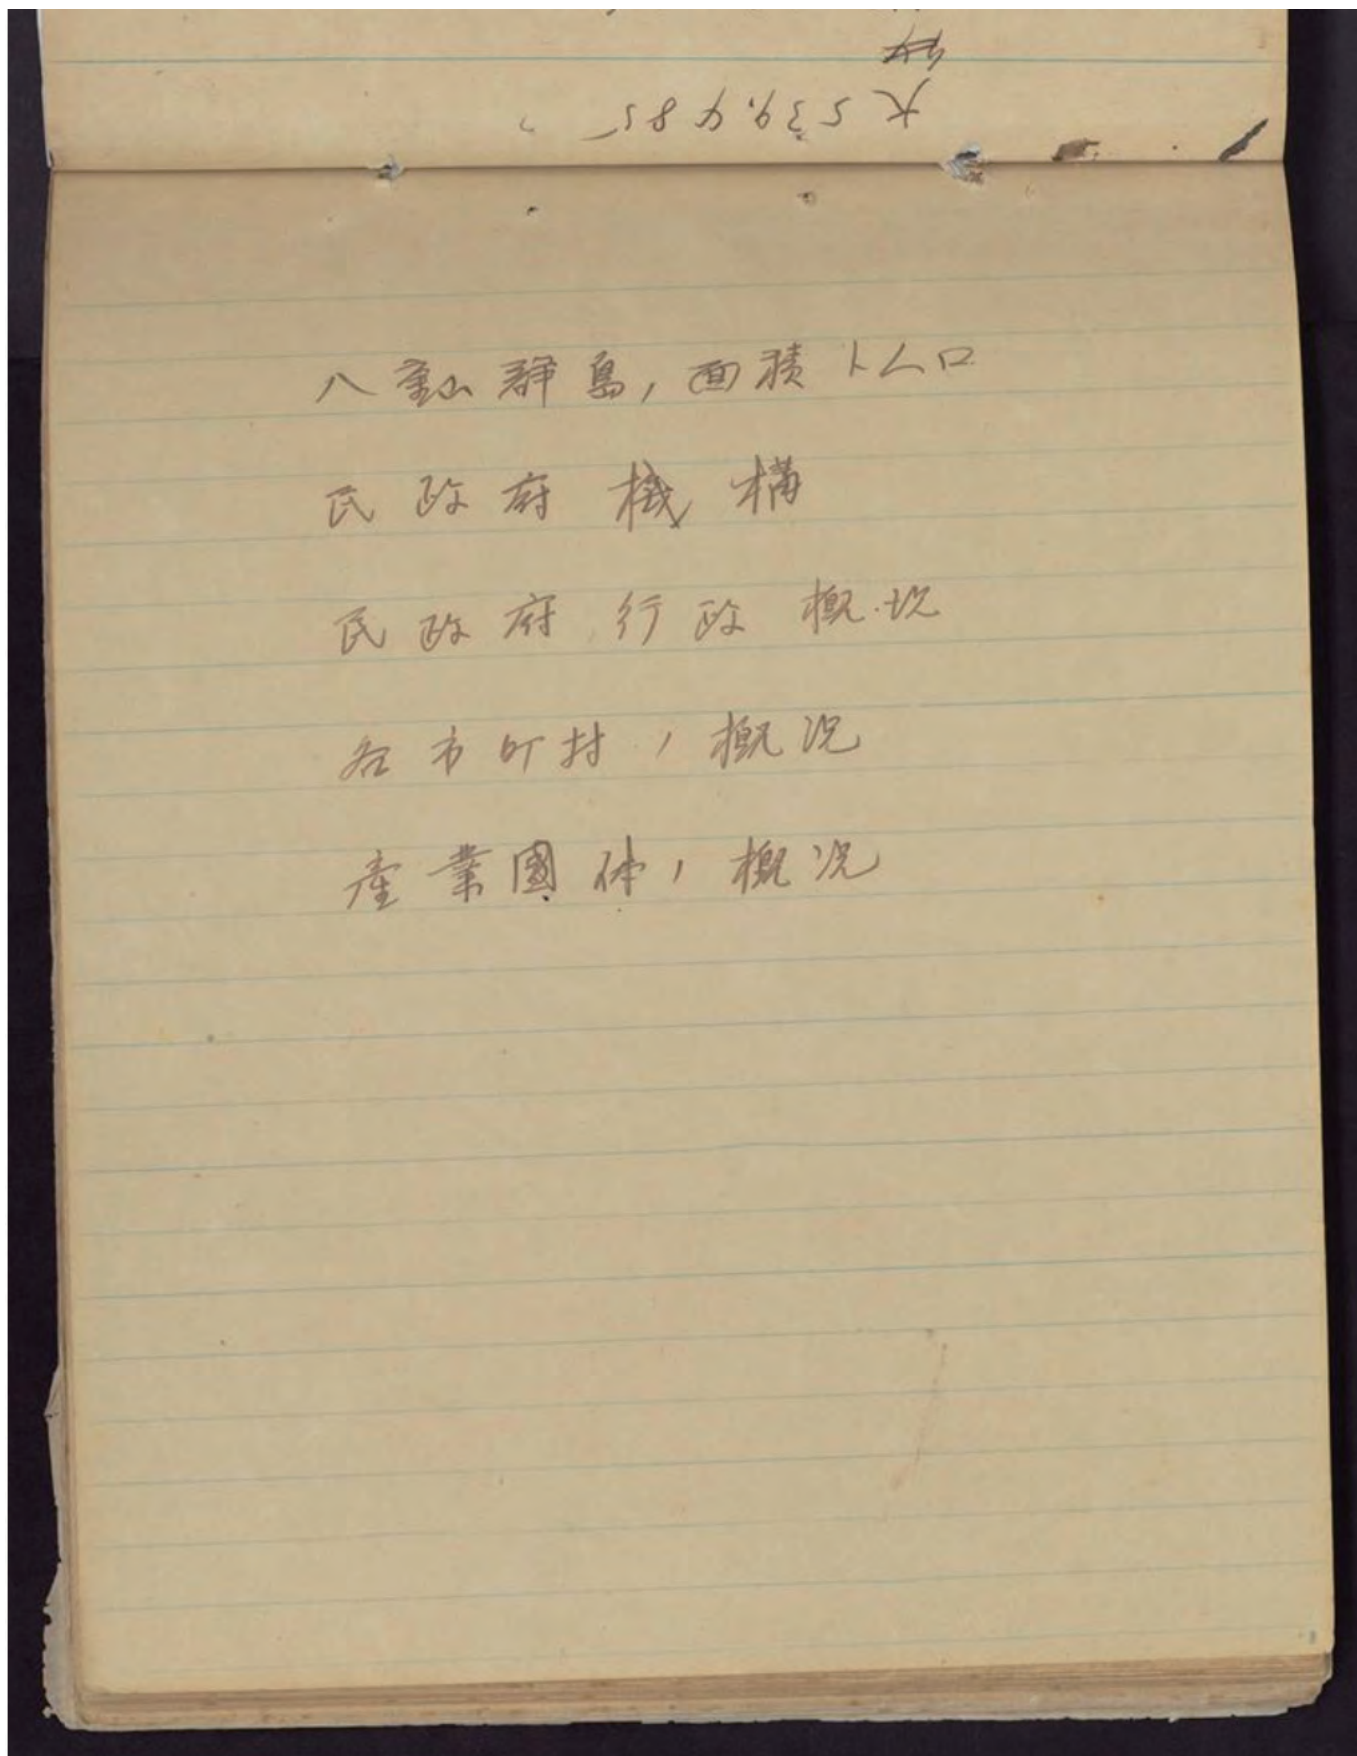 大 539,485
八重山群島ノ面積ト人口
民政府機構
民政府行政概況
各市町村ノ概況
産業團体ノ概況